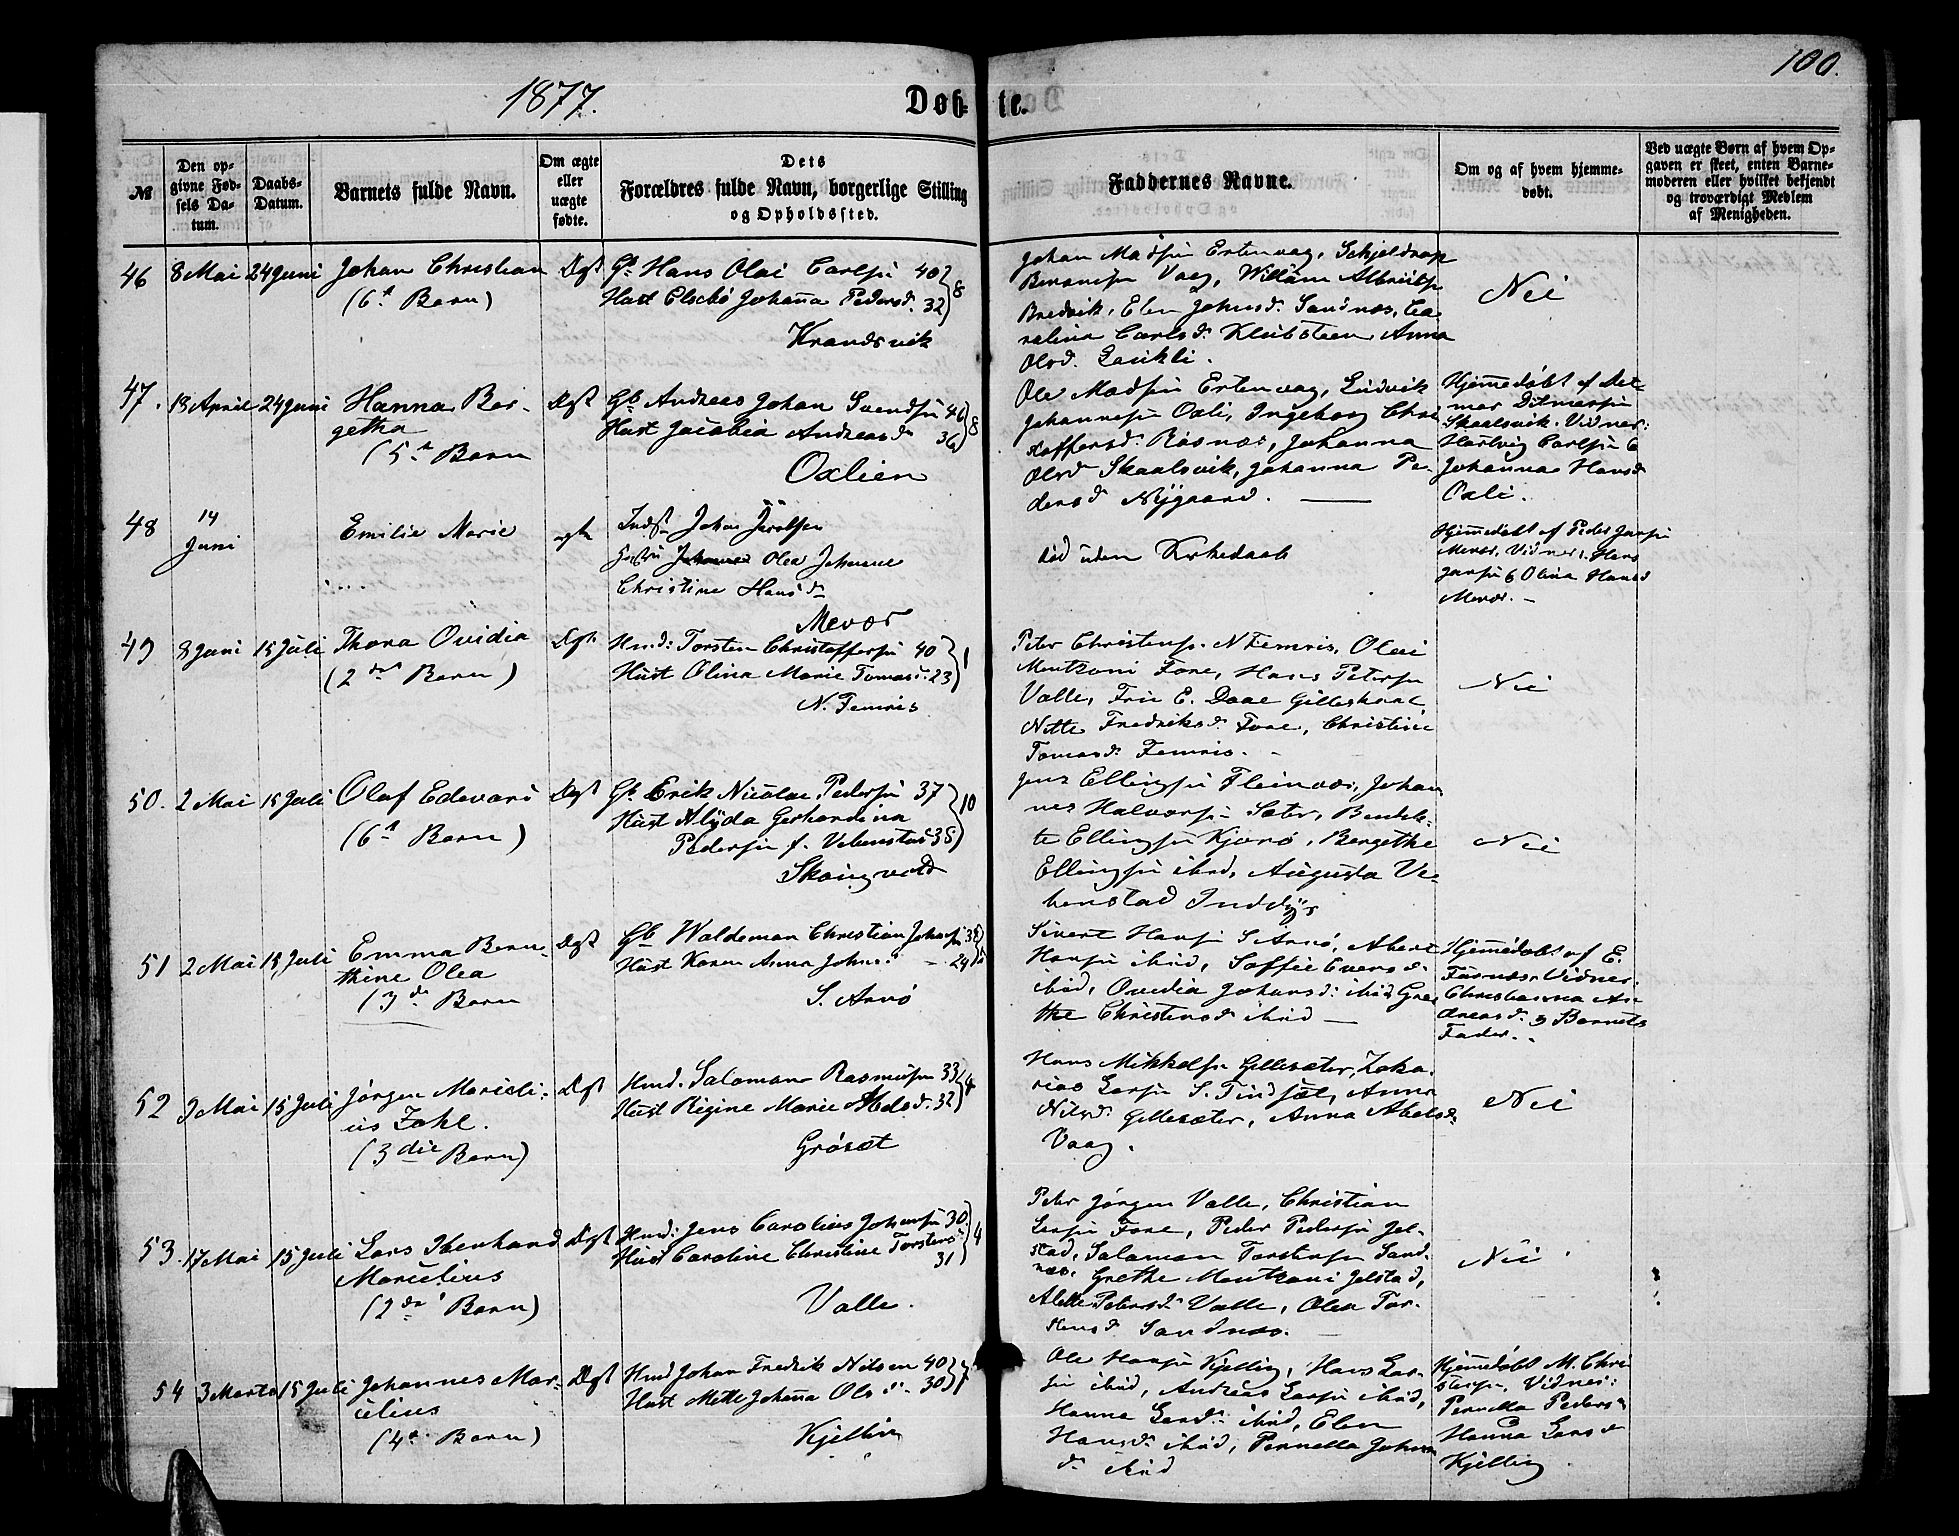 100.
1877.
Døb-
te.
№
Den op-
givne Fød-
sels Da-
tum.
Daabs-
Datum.
Barnets fulde Navn.
Om ægte
eller
uægte
fødte.
Dets
Forældres fulde Navn, borgerlige Stilling
og Opholdssted.
Faddernes Navne.
Om og af hvem hjemme-
døbt.
Ved uægte Børn af hvem Op-
gaven er skeet, enten Barne-
moderen eller hvilket bekjendt
og troværdigt Medlem
af Menigheden.
46 8 Mai 24 Juni Johan Christian
(6t Barn)
Gb. Hans Olai Carlsen 40
Hust Johanna Pedersd. 32
8
Johan Madsen Ertenvag,
Vaag, Willum
Bredvik, Elen Johnsd. Sandnæs, Ca-
rolina Carlsd. Klubsteen Anna
Olsd.
Nei
47. 18 April 24 Juni Hanna Ber-
getha
(5t Barn
Gb Andreas Johan Svendsen 46
Hust Jacobia Andreasd 36
8
Oxlien
Ole Madsen Ertenvag, Ludvik
Johannesen Oxli, Ingeborg Chri
stoffersd. Røsnæs, Johanna
Olsd Skaalsvik, Johanna Pe-
dersd Nygaard.
Hjemmedøbt af Det-
mer Ditmersen
Skaalsvik. Vidner:
Hartvig Carlsen &
Johanna Hansd
Oxli.
48 14
Juni
Emilie Marie
ægte
Johan
Hustru Olea Johanne
Christine Hansd
Mevær
død uden Kirkedaab
Hjemmedøbt af Peder Jansen
Mevær, Vidner, Hans
Jansen & Olina Hansd
Mevær.
49 8 Juni 15 Juli Thora Ovidia
(2det Barn)
Hmd: Torsten Christoffersen 40
Hust Olina Marie Tomasd. 23
1
N. Femris
Peter Christens. N Femris, Olai
Mentzoni Fore, Hans Petersen
Valle, Fru E. Daae Gilleskaal,
Nette Fredriksd Fore, Christine
Tomasd. Femris.
Nei
50. 2 Mai 15 Juli Olaf Edevard
(6t Barn)
Gb. Erik Nicolai Pedersen 37
Hust Alyda Gerhardina
Pedersen f. Vebenstad 35
10
Skaugvold
Jens Ellingsen Fleinvær, Johan
nes Halvorsen Sæter,
Ellingsen Kjærø, Bergethe
Ellingsen ibid, Augusta Ve-
benstad Inddyr
Nei
51 2 Mai 15 Juli Emma Bern-
thine Olea
(3de Barn
Gb Waldemar Christian Johansen
Hust Karen Anna Johnsd
S. Arnø
Sivert Hansen S Arnø, Albert
Hansen ibid, Soffie Eversd.
ibid, Ovedia Johansd. ibid, Gre-
the Christensd ibid
Hjemmedøbt af E.
Furnæs. Vidner:
Christianna An-
dreasd. & Barnets
Fader.
52 9 Mai 15 Juli Jørgen Marseli-
us Zahl.
(3die Barn)
Hmd. Salomon Rasmusen 33
Hust Regine Marie Abelsd. 32
4
Grøsæt
Hans Mikkelsen Gillesæter, Zaka-
rias Larsen S. Finset, Anna
Nilsd. Gillesæter, Anna Abelsd.
Vaag.
Nei
53. 17 Mai 15 Juli Lars Iberhard
Marcelius
(2det Barn)
Hmd: Jens Carolius Johansen 30
Hust Caroline Christine Torstensd
31
4
Valle.
Peter Jørgen Valle, Christian
Larsen Fore, Peder Pedersen Jel-
stad, Salomon Torstensen Sand-
næs, Grethe Mentzoni Jelstad,
Alette Petersd. Valle, Olea Tor-
stensd. Sandnæs.
Nei
54 3 Marts 15 Juli Johannes Mar-
celius
(4de Barn)
Hmd Johan Fredrik Nilsen 40
Hust Mette Johanna Olsd. 30
Kjelling
Ole Hansen Kjelling, Hans Lar-
sen ibid, Andreas Larsen ibid,
Hanna Larsd. ibid, Elen
Hansd. ibid, Pernella Johan
d. ibid
Hjemmedøbt M. Chri
stensen. Vidner:
Pernella Pedersd
Hanna Larsd
Kjelling.